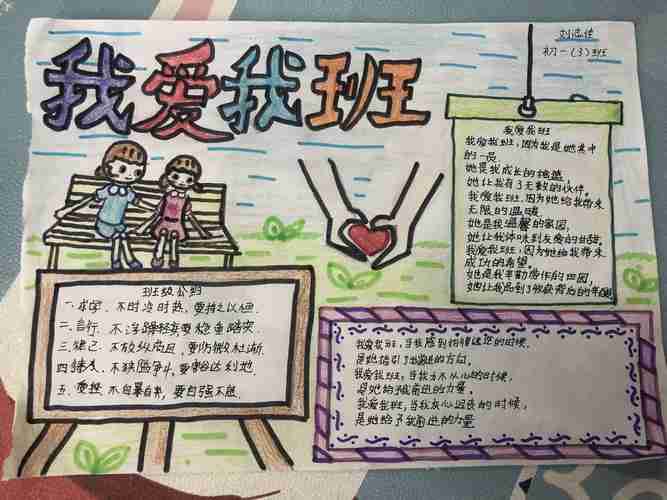 我爱我班
初一(3)班
我爱我班
我爱我班,因为我是她其中
的一员。
她是我成长的摇篮
她让我有了无数的伙伴。
我爱我班,因为她给我带来
无限的温暖。
她是我温馨的家园,
她让我体味到友爱的甘甜。
我爱我班,因为她给我带来
成功的希望。
她是我辛勤劳作的田园,
她让我品到了收获背后的辛酸
班级公约
一、求学、不时冷时热,要持之以恒.
二、言行、不浮躁轻妄要稳重踏实.
三、律己、不放纵苟且,要防微杜渐.
四、不狭隘争斗、要豁达利他.
五、不自暴自弃,要自强不息.
我爱我班,当我感到彷徨迷茫的时候,
是她指引了我前进的方向,
我爱我班,当我力不从心的时候,
是她给予我前进的力量,
我爱我班,当我灰心沮丧的时候,
是她给了我前进的力量